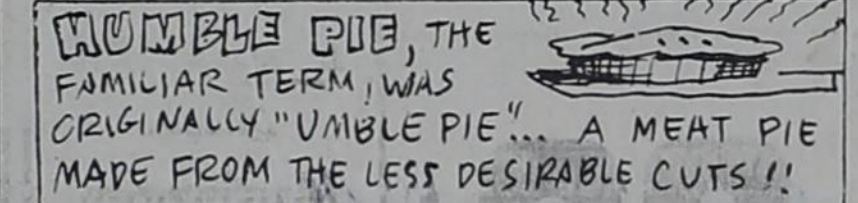 HUMBLE PIE, THE
FAMILIAR TERM, WAS
ORIGINALLY "UMBLE PIE"... A MEAT PIE
MADE FROM THE LESS DESIRABLE CUTS!!